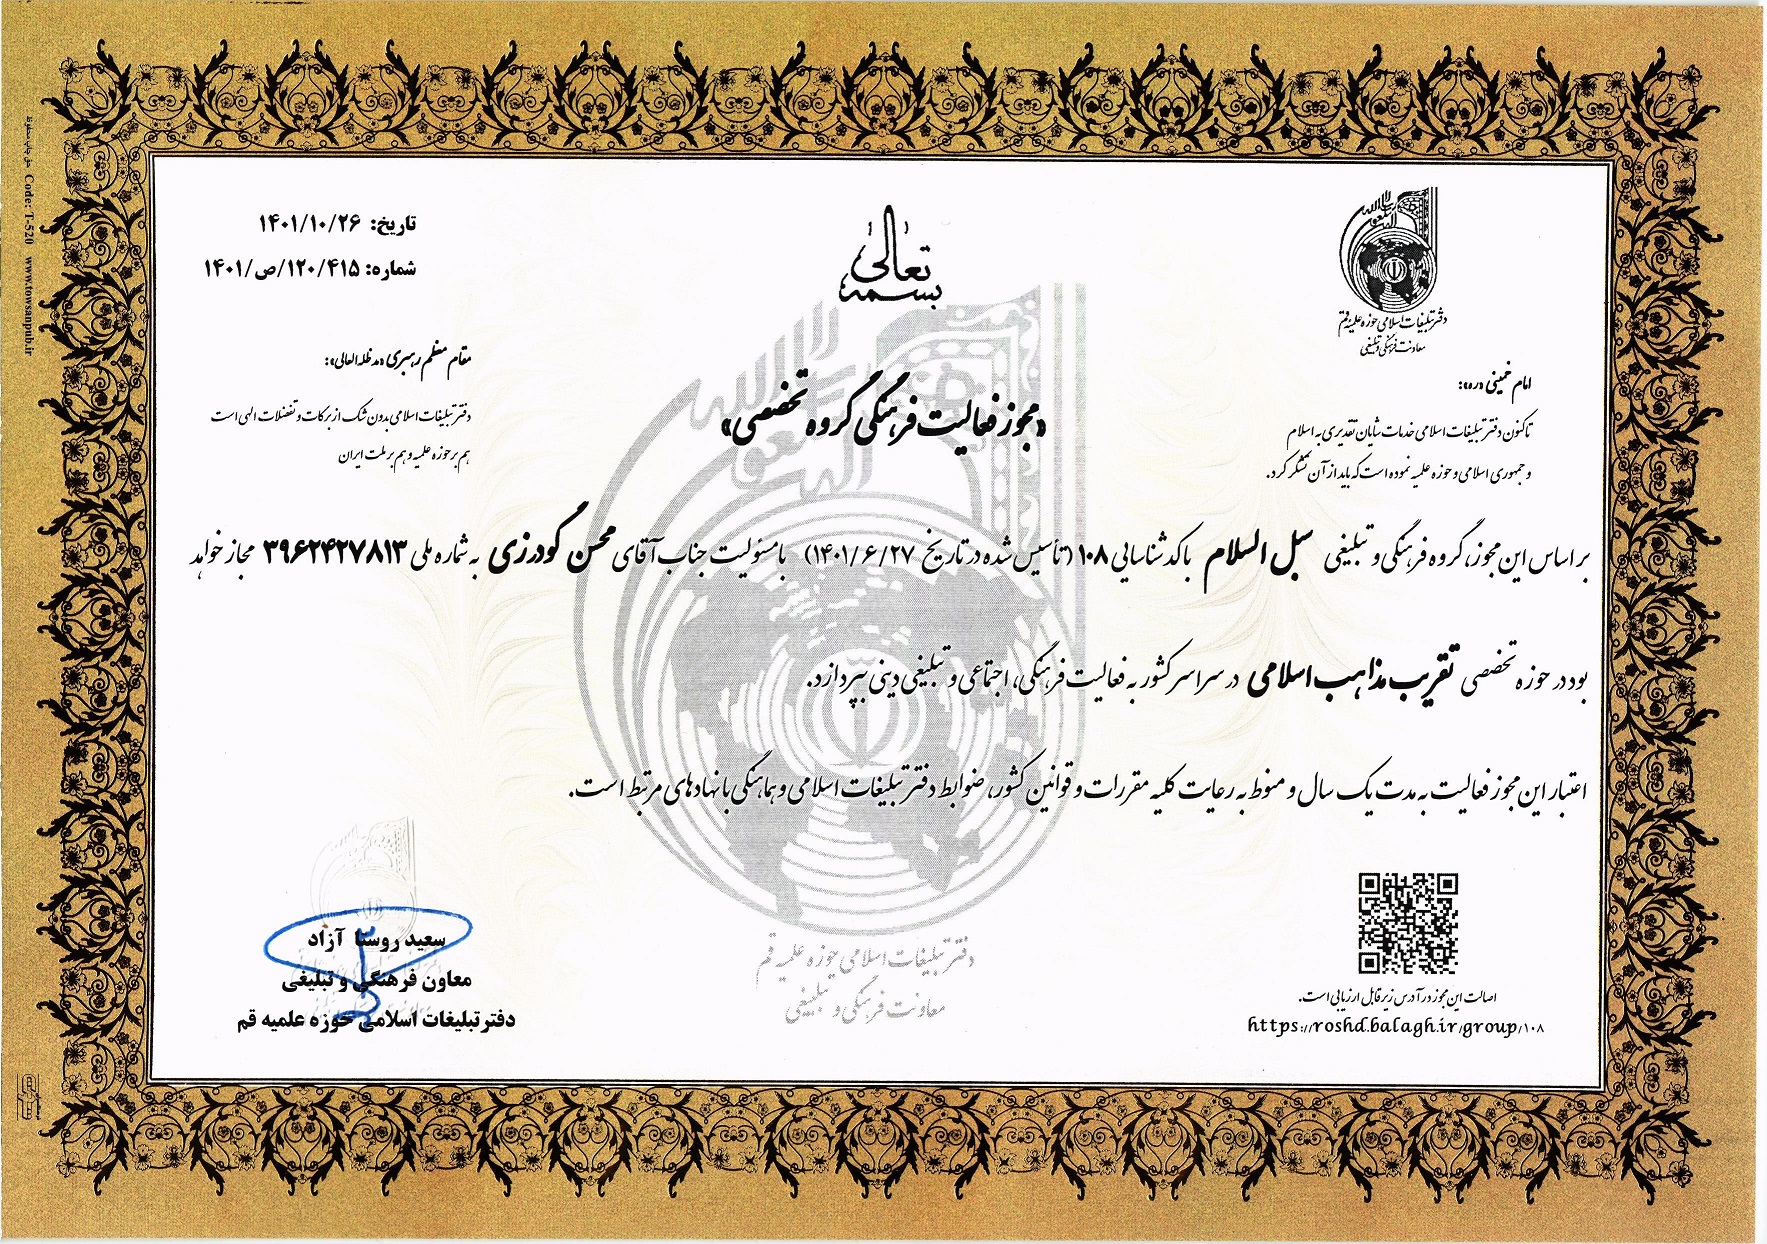 بسمه تعالی
تاریخ: ۱۴۰۱/۱۰/۲۶
شماره: ۱۲۰/۴۱۵/ص/۱۴۰۱
دفتر تبلیغات اسلامی حوزه علمیه قم
معاونت فرهنگی و تبلیغی
امام خمینی «ره»:
تاکنون دفتر تبلیغات اسلامی خدمات شایان تقدیری به اسلام
و جمهوری اسلامی و حوزه علمیه نموده است که باید از آن تشکر کرد.
مقام معظم رهبری «مدظله العالی»:
دفتر تبلیغات اسلامی بدون شک از برکات و تفضلات الهی است
هم بر حوزه علمیه و هم بر ملت ایران
«مجوز فعالیت فرهنگی گروه تخصصی»
بر اساس این مجوز، گروه فرهنگی و تبلیغی سبل السلام با کد شناسایی ۱۰۸ (تأسیس شده در تاریخ ۱۴۰۱/۶/۲۷) با مسئولیت جناب آقای محسن گودرزی به شماره ملی ۳۹۶۲۴۲۷۸۱۳ مجاز خواهد
بود در حوزه تخصصی تقریب مذاهب اسلامی در سراسر کشور به فعالیت فرهنگی، اجتماعی و تبلیغی دینی بپردازد.
اعتبار این مجوز فعالیت به مدت یک سال و منوط به رعایت کلیه مقررات و قوانین کشور، ضوابط دفتر تبلیغات اسلامی و هماهنگی با نهادهای مرتبط است.
دفتر تبلیغات اسلامی حوزه علمیه قم
معاونت فرهنگی و تبلیغی
اصالت این مجوز در آدرس زیر قابل ارزیابی است.
https://roshd.balagh.ir/group/۱۰۸
سعید روستا آزاد
معاون فرهنگی و تبلیغی
دفتر تبلیغات اسلامی حوزه علمیه قم
Code: T-520 www.towsanpub.ir